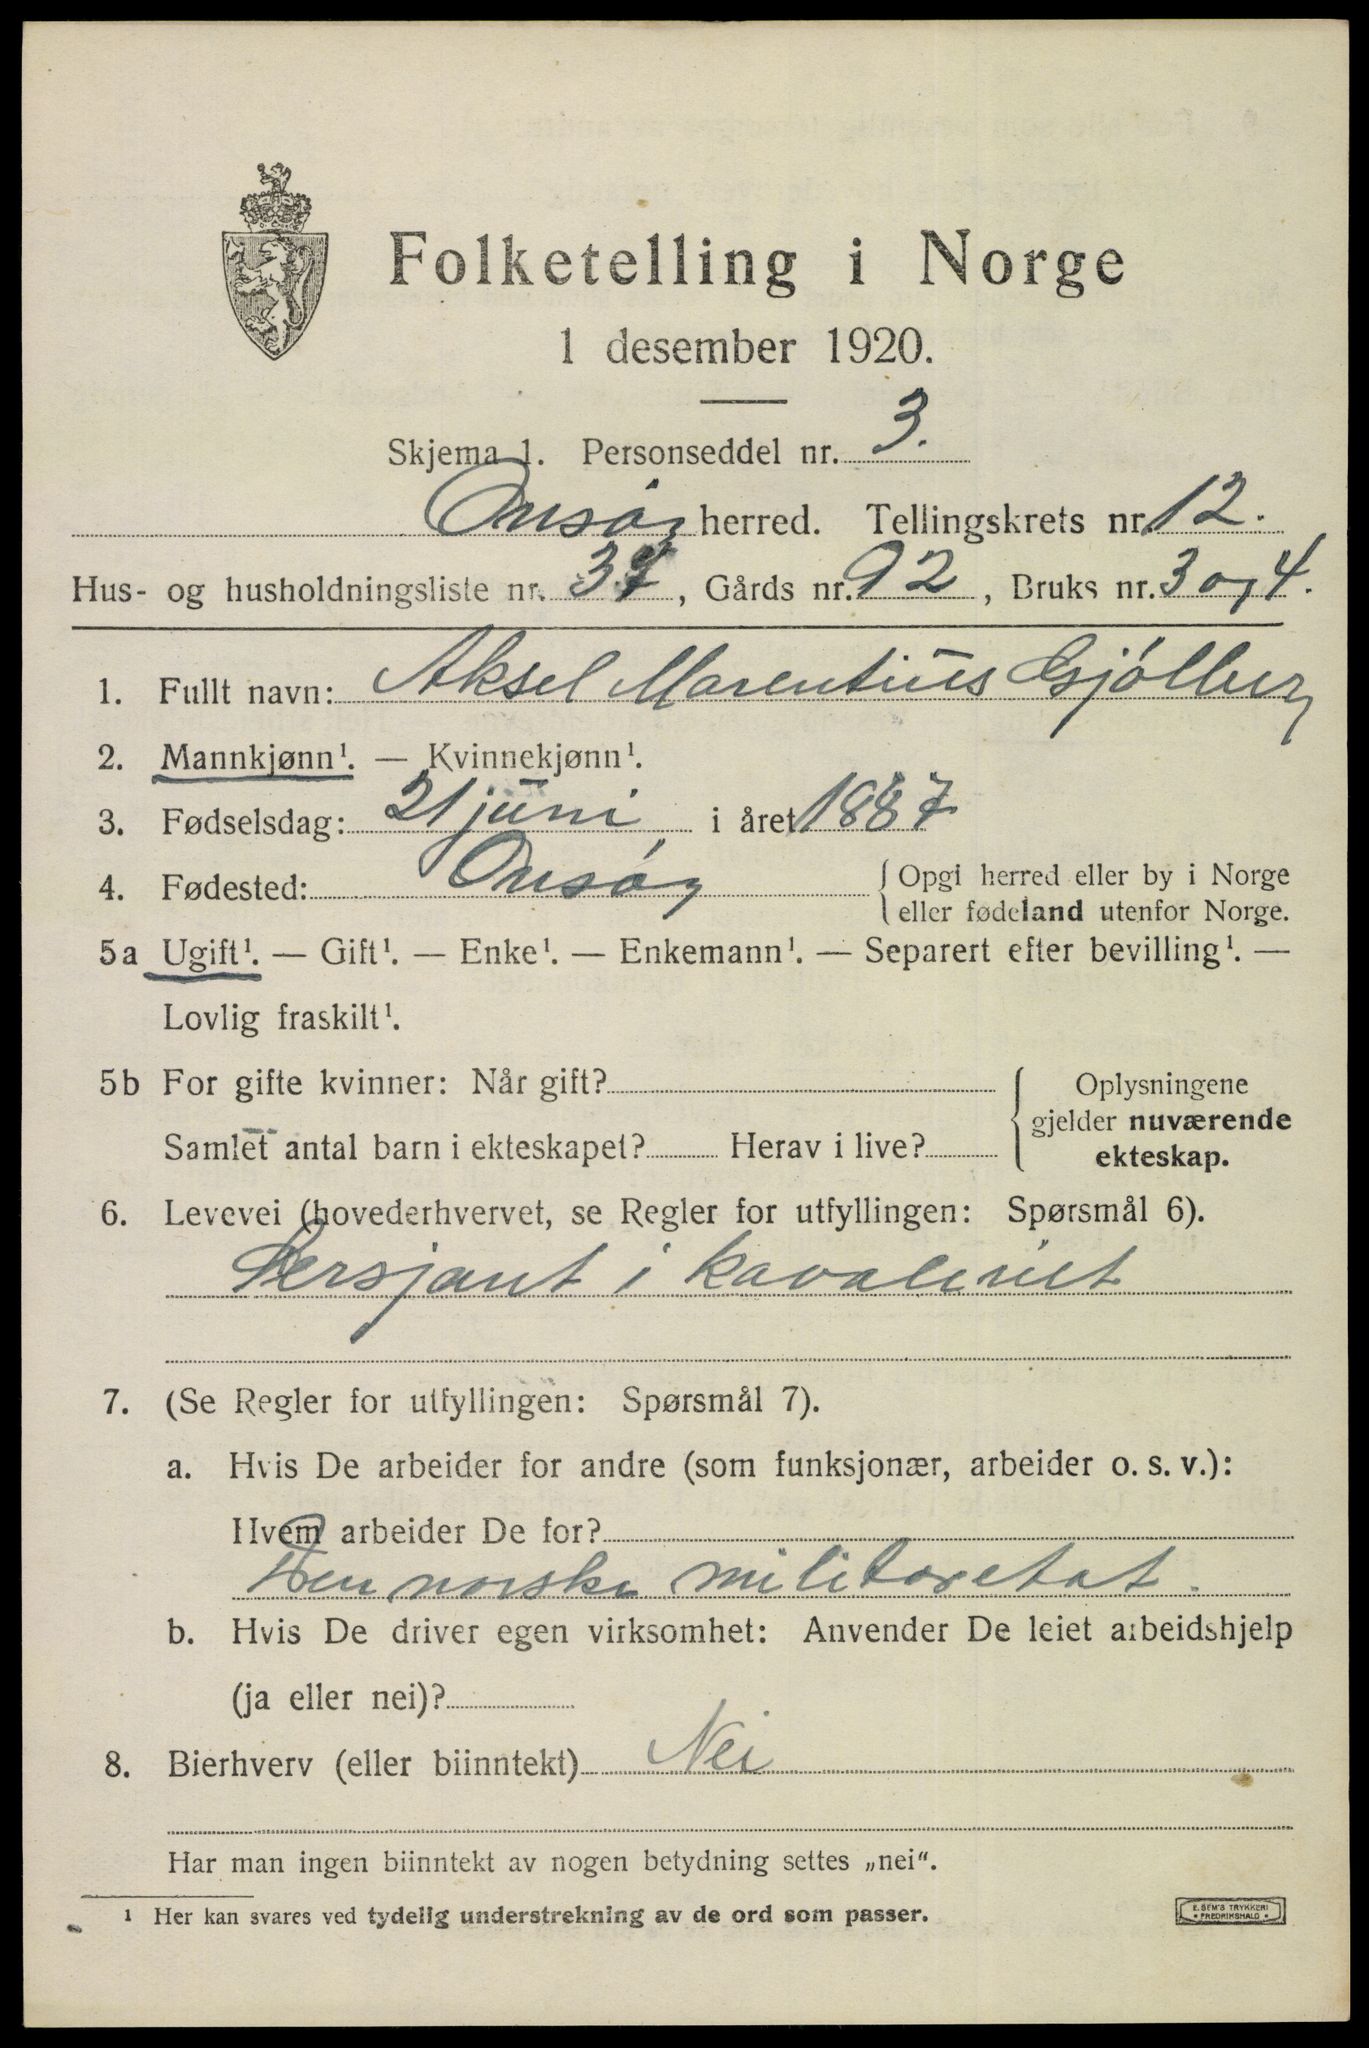 Folketelling i Norge
1 desember 1920.
Skjema 1. Personseddel nr. 3.
Onsøy herred. Tellingskrets nr. 12.
Hus- og husholdningsliste nr. 37, Gårds nr. 92, Bruks nr. 3 og 4.
1. Fullt navn: Aksel Marentius Gjølberg
2. Mannkjønn¹. — Kvinnekjønn¹.
3. Fødselsdag: 21 juni i året 1887
4. Fødested: Onsøy { Opgi herred eller by i Norge
eller fødeland utenfor Norge.
5a Ugift¹. — Gift¹. — Enke¹. — Enkemann¹. — Separert efter bevilling¹. —
Lovlig fraskilt¹.
5b For gifte kvinner: Når gift? { Oplysningene
gjelder nuværende
Samlet antal barn i ekteskapet? Herav i live?
ekteskap.
6. Levevei (hovederhvervet, se Regler for utfyllingen: Spørsmål 6).
Sersjant i kavaleriet
7. (Se Regler for utfyllingen: Spørsmål 7).
a. Hvis De arbeider for andre (som funksjonær, arbeider o. s. v.):
Hvem arbeider De for?
Den norske militæretat.
b. Hvis De driver egen virksomhet: Anvender De leiet arbeidshjelp
(ja eller nei)?
8. Bierhverv (eller biinntekt) Nei
Har man ingen biinntekt av nogen betydning settes „nei“.
¹ Her kan svares ved tydelig understrekning av de ord som passer.
E. SEM'S TRYKKERI
• FREDRIKSHALD •